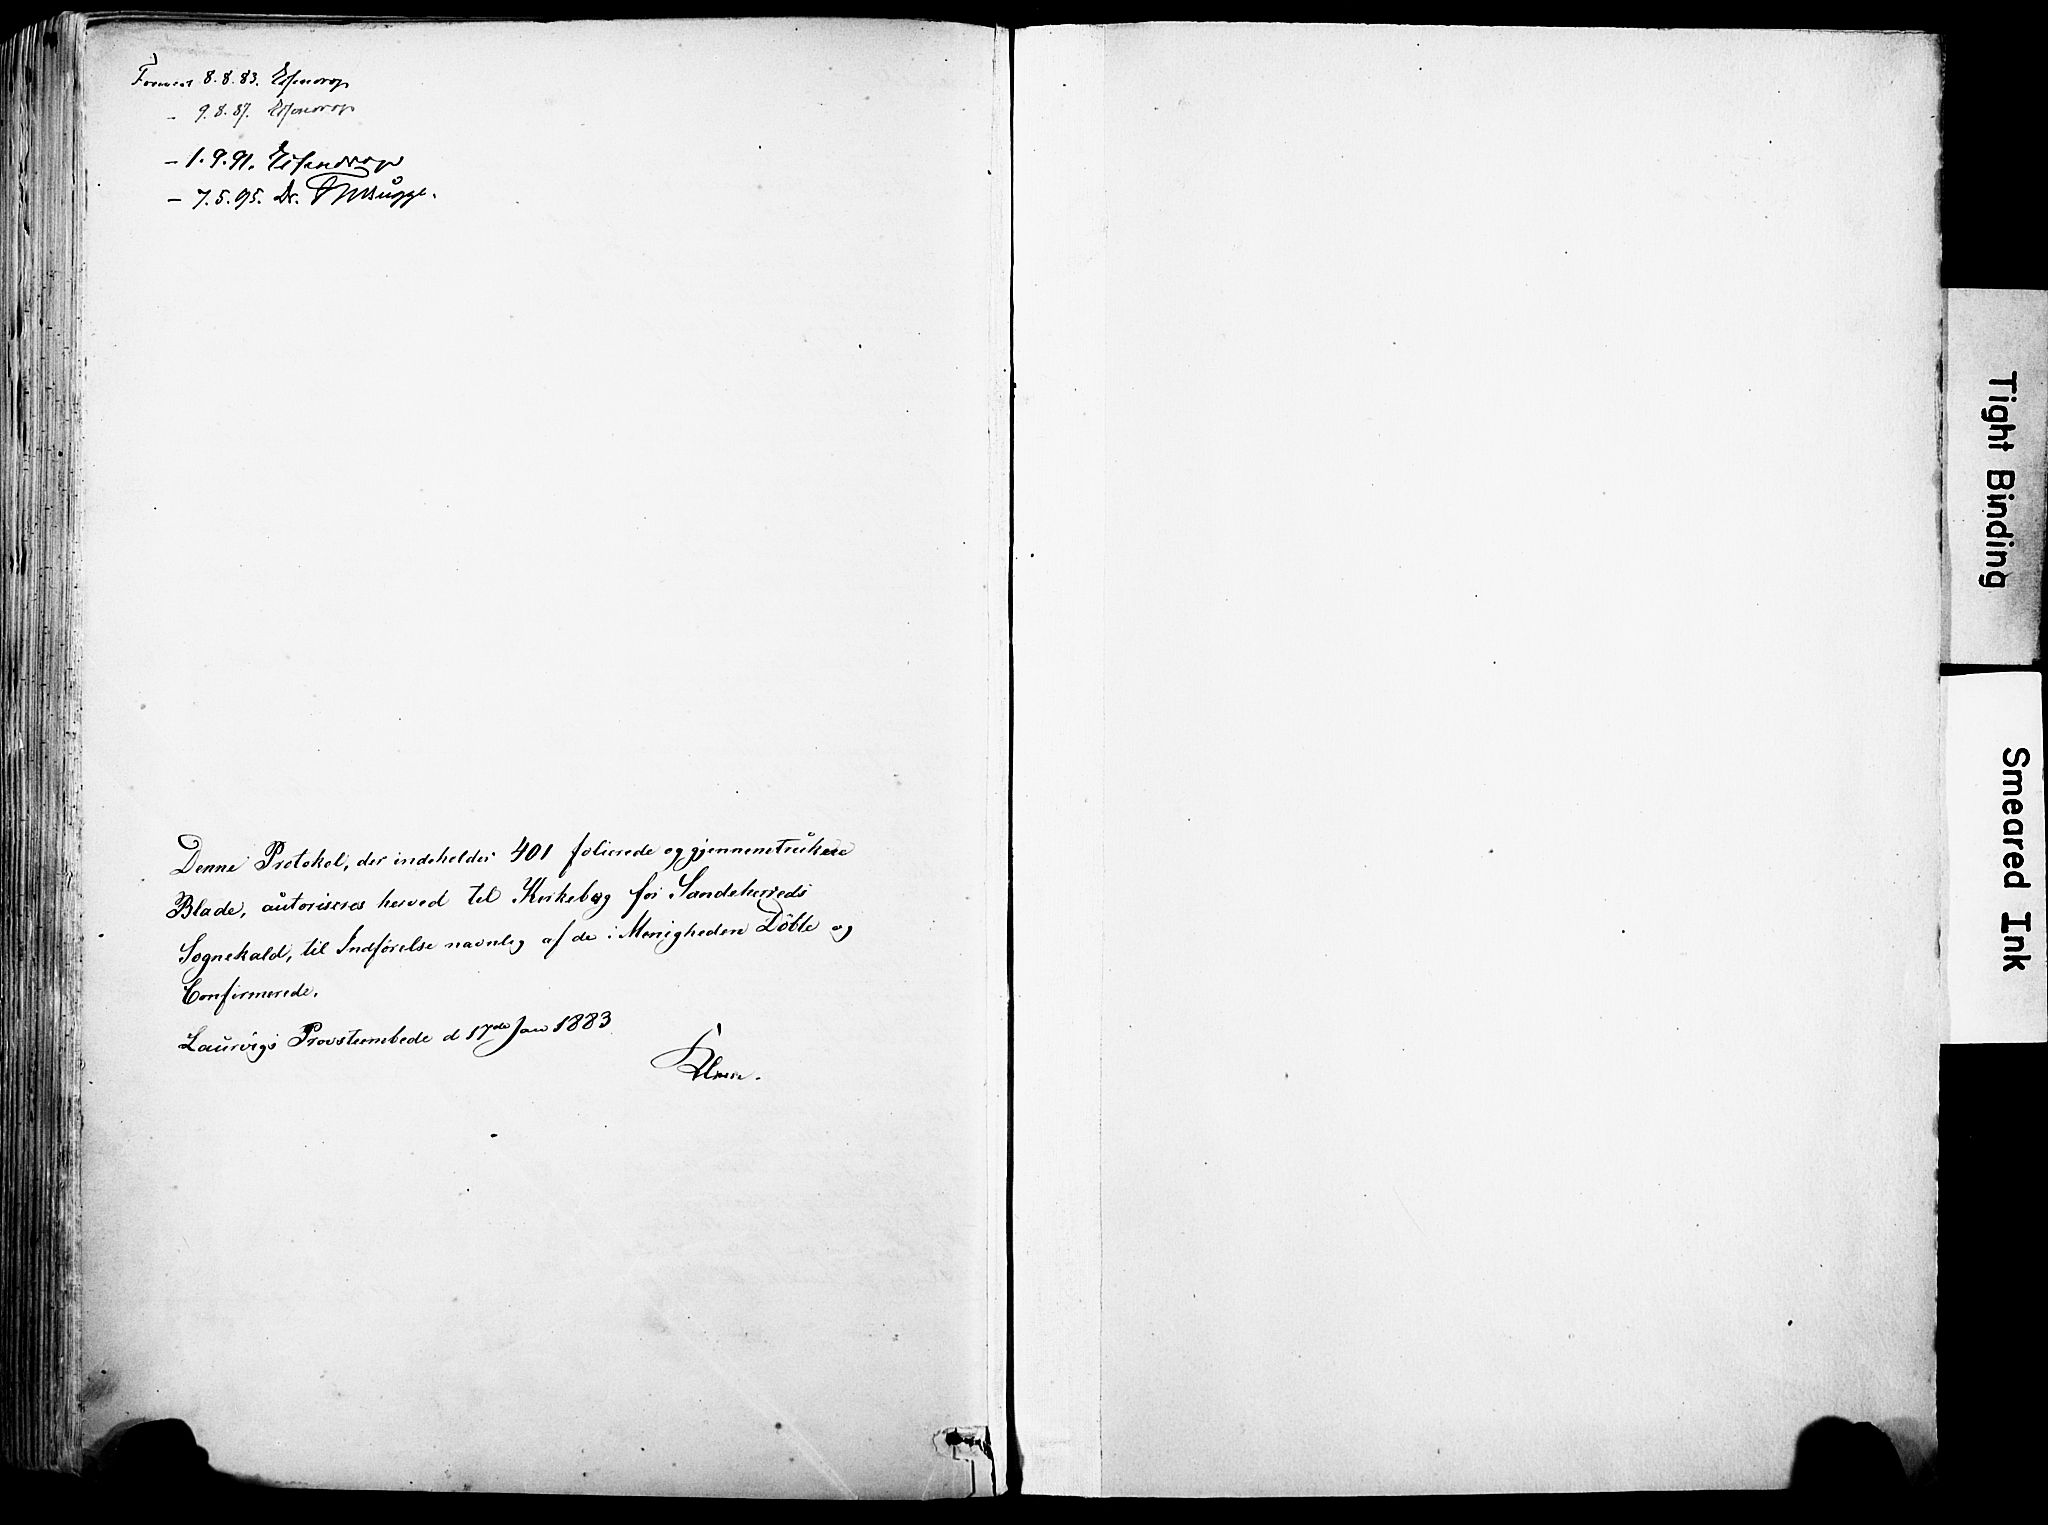 Forevist 8.8.83. Essendrop
- 9.8.87. Essendrop
- 1.9.91. Essendrop
- 7.5.95. Dr. Bugge.
Denne Protokol, der indeholder 401 folierede og gjennemtrukne
Blade, autoriseres herved til Kirkebog for Sandeherreds
Sognekald, til Indførelse navnlig af de i Menigheden Döbte og
Confirmerede.
Laurvigs Provsteembede d 17de Jan 1883
Tight Binding
Smeared Ink